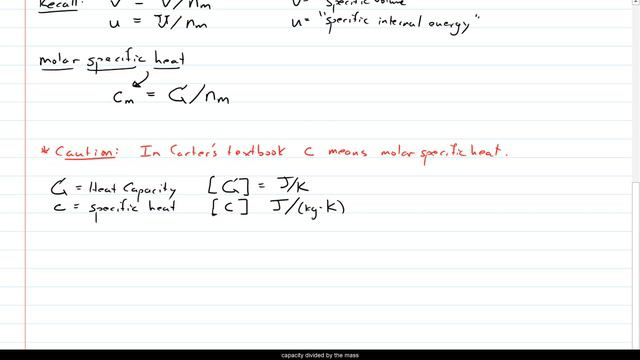 Recall: v = V/nm v = "specific volume"
u = U/nm u = "specific internal energy"
molar specific heat
cm = C/nm
* Caution: In Carter's textbook c means molar specific heat.
C = Heat Capacity [C] = J/K
c = specific heat [c] J/(kg·K)
capacity divided by the mass